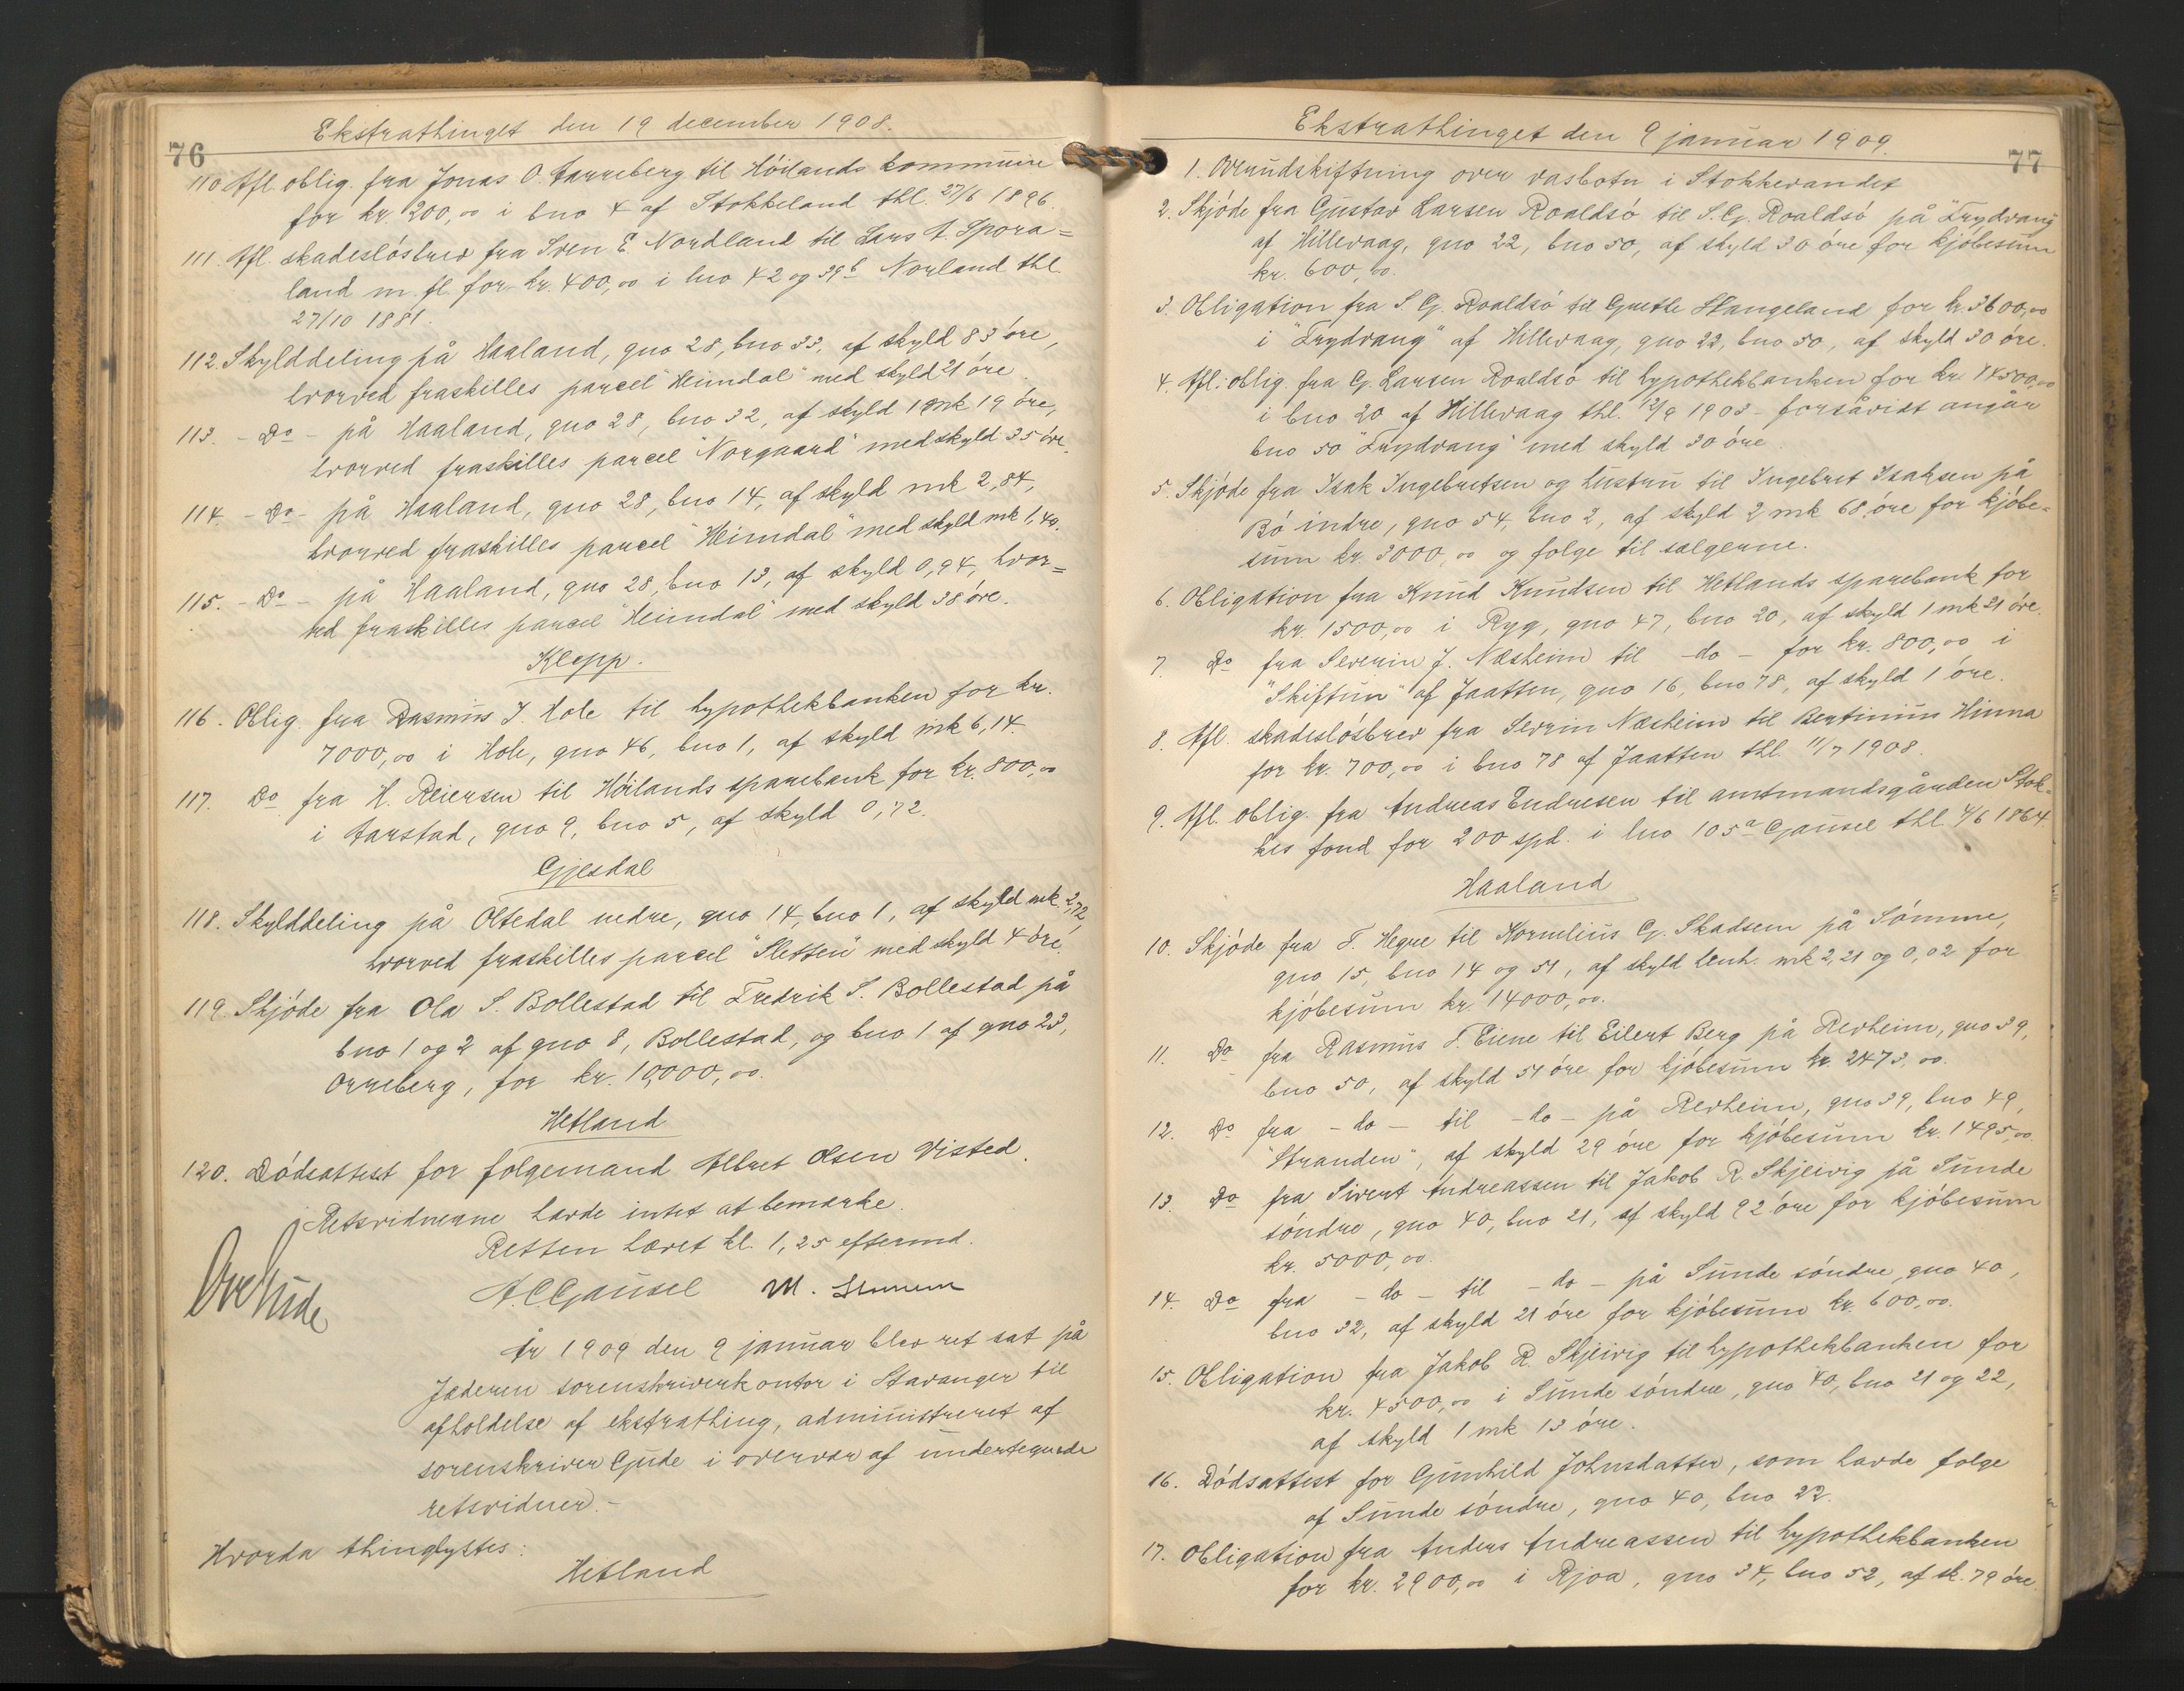 76
Ekstrathinget den 19 december 1908.
110 Afl. oblig. fra Jonas O. Aarreberg til Höilands kommune
for kr. 200,00 i bno 4 af Stokkeland thl. 27/6 1896.
111. Afl. skadeslösbrev fra Sven E. Nordland til Lars A. Spora=
land m. fl. for kr. 400,00 i lno 42 og 39b Norland thl.
27/10 1881.
112. Skylddeling på Haaland, gno 28, bno 33, af skyld 83 öre,
hvorved fraskilles parcel "Heimdal" med skyld 21 öre.
113. - Do - på Haaland, gno 28, bno 32, af skyld 1 mk 19 öre,
hvorved fraskilles parcel "Norgaard" med skyld 35 öre.
114. - Do - på Haaland, gno 28, bno 14, af skyld mk 2,84,
hvorved fraskilles parcel "Heimdal" med skyld mk 1,40.
115. - Do - på Haaland, gno 28, bno 13, af skyld 0,94, hvor=
ved fraskilles parcel "Heimdal" med skyld 38 öre.
Klepp.
116. Oblig. fra Rasmus I. Hole til hypothekbanken for kr.
7000,00 i Hole, gno 46, bno 1, af skyld mk 6,14.
117. Do fra H. Reiersen til Höilands sparebank for kr. 800,00
i Aarstad, gno 9, bno 5, af skyld 0,72.
Gjesdal
118. Skylddeling på Oltedal nedre, gno 14, bno 1, af skyld mk. 2,72,
hvorved fraskilles parcel "Sletten" med skyld 4 öre.
119. Skjöde fra Ola S. Bollestad til Fredrik S. Bollestad på
bno 1 og 2 af gno 8, Bollestad, og bno 1 af gno 23,
Orreberg, for kr. 10,000,00.
Hetland
120. Dödsattest for folgemand Albret Olsen Visted.
Retsvidnerne havde intet at bemærke.
Retten hævet kl. 1,25 eftermd.
Ove Gude
A. C. Gausel M.
År 1909 den 9 januar blev ret sat på
Jæderen sorenskriverkontor i Stavanger til
afholdelse af ekstrathing, administreret af
sorenskriver Gude i overvær af undertegnede
retsvidner.-
Hvorda thinglystes:
Hetland
77
Ekstrathinget den 9 januar 1909.
1. Overudskiftning over vasbotn i Stokkevandet
2. Skjöde fra Gustav Larsen Roaldsö til S. G. Roaldsö på "Frydvang"
af Hillevaag, gno 22, bno 50, af skyld 30 öre for kjöbesum
kr. 600,00.
3. Obligation fra S. G. Roaldsö til Gunthe Stangeland for kr 3600,00
i "Frydvang" af Hillevaag, gno 22, bno 50, af skyld 30 öre.
4. Afl. oblig. fra G. Larsen Roaldsö til hypothekbanken for kr 14500,00
i bno 20 af Hillevaag thl. 12/9 1903 - forsåvidt angår
bno 50 "Frydvang" med skyld 30 öre.
5. Skjöde fra Isak Ingebretsen og hustru til Ingebret Isaksen på
Bö indre, gno 54, bno 2, af skyld 2 mk 68 öre for kjöbe-
sum kr. 3000,00 og folge til sælgerne.
6. Obligation fra Knud Knudsen til Hetlands sparebank for
kr. 1500,00 i Ryg, gno 47, bno 20, af skyld 1 mk 21 öre.
7. Do fra Severin J. Næsheim til - do - for kr. 800,00 i
"Skiftun" af Jaatten, gno 16, bno 78, af skyld 1 öre.
8. Afl. skadeslösbrev fra Sevrin Næsheim til Bertinius Hinna
for kr. 700,00 i bno 78 af Jaatten thl. 11/7 1908.
9. Afl. oblig. fra Andreas Endresen til amtmandsgården Stok-
kes fond for 200 spd. i lno 105a Gausel thl. 4/6 1864.
Haaland
10. Skjöde fra T. Hegre til Kornelius G. Skadsem på Sömme,
gno 15, bno 14 og 51, af skyld henh. mk 2,21 og 0,02 for
kjöbesum kr. 14000,00.
11. Do fra Rasmus T. Eiene til Eilert Berg på Revheim, gno 39,
bno 50, af skyld 51 öre for kjöbesum kr. 2473,00.
12. Do fra - do - til - do - på Revheim, gno 39, bno 49,
"Stranden", af skyld 29 öre for kjöbesum kr. 1495,00.
13. Do fra Sivert Andreassen til Jakob R. Skjeivig på Sunde
söndre, gno 40, bno 21, af skyld 92 öre for kjöbesum
kr. 5000,00.
14. Do fra - do - til - do - på Sunde söndre, gno 40,
bno 32, af skyld 21 öre for kjöbesum kr. 600,00.
15. Obligation fra Jakob R. Skjeivig til hypothekbanken for
kr. 4500,00 i Sunde söndre, gno 40, bno 21 og 22,
af skyld 1 mk 13 öre.
16. Dödsattest for Gunhild Johnsdatter, som havde folge
af Sunde söndre, gno 40, bno 22.
17. Obligation fra Anders Andreassen til hypothekbanken
for kr. 2900,00 i Rjoa, gno 34, bno 52, af sk. 79 öre.